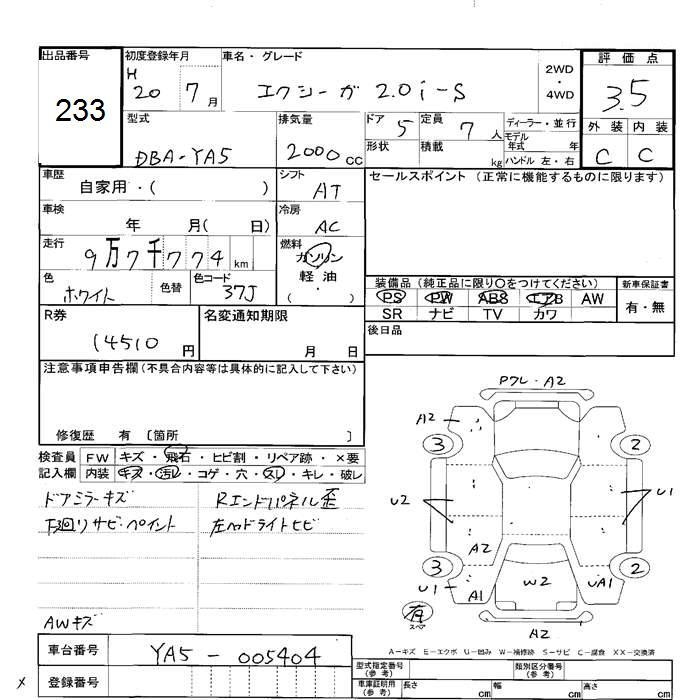 出品番号 初度登録年月 車名・グレード 評価点
233
H 20 7月 エクシーガ 2.0i-S 2WD・4WD 3.5
型式 排気量 ドア 5 定員 7人 ディーラー・並行 外装 内装
DBA-YA5 2000cc 形状 積載 kg モデル年式 年 ハンドル 左・右 C C
車歴 自家用・( ) シフト AT セールスポイント (正常に機能するものに限ります)
車検 年 月( 日) 冷房 AC
走行 9万7千774km 燃料 ガソリン・軽油・( )
色 ホワイト 色替 色コード 37J
装備品 (純正品に限り○をつけてください) 新車保証書
PS PW ABS エアB AW 有・無
SR ナビ TV カワ
R券 14510円 名変通知期限 月 日 後日品
注意事項申告欄 (不具合内容等は具体的に記入して下さい)
修復歴 有 〔箇所 〕
検査員 FW キズ・飛石・ヒビ割・リペア跡・×要
記入欄 内装 キズ・汚レ・コゲ・穴・スレ・キレ・破レ
ドアミラーキズ Rエンドパネル歪
下廻りサビ・ペイント 左ヘッドライトヒビ
AWキズ
Pフレ・A2
A2
3 2
U2 U1
A2
3 2
U1 A1 W2 UA1
有 スペア
A2
A-キズ E-エクボ U-凹み W-補修跡 S-サビ C-腐食 XX-交換済
車台番号 YA5-005404
型式指定番号 (参考) 類別区分番号 (参考)
× 登録番号
車庫証明用 (参考) 長さ cm 幅 cm 高さ cm